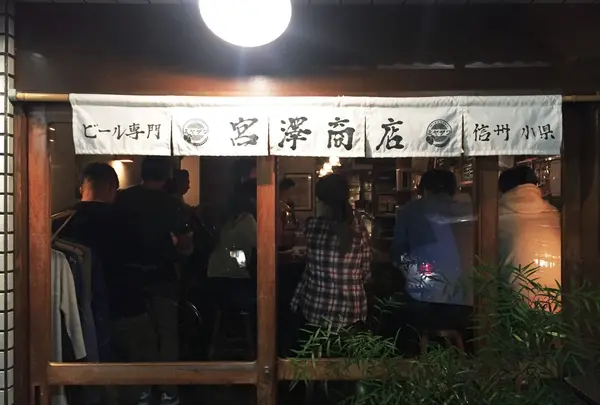 ビール専門 宮澤商店 信州 小県